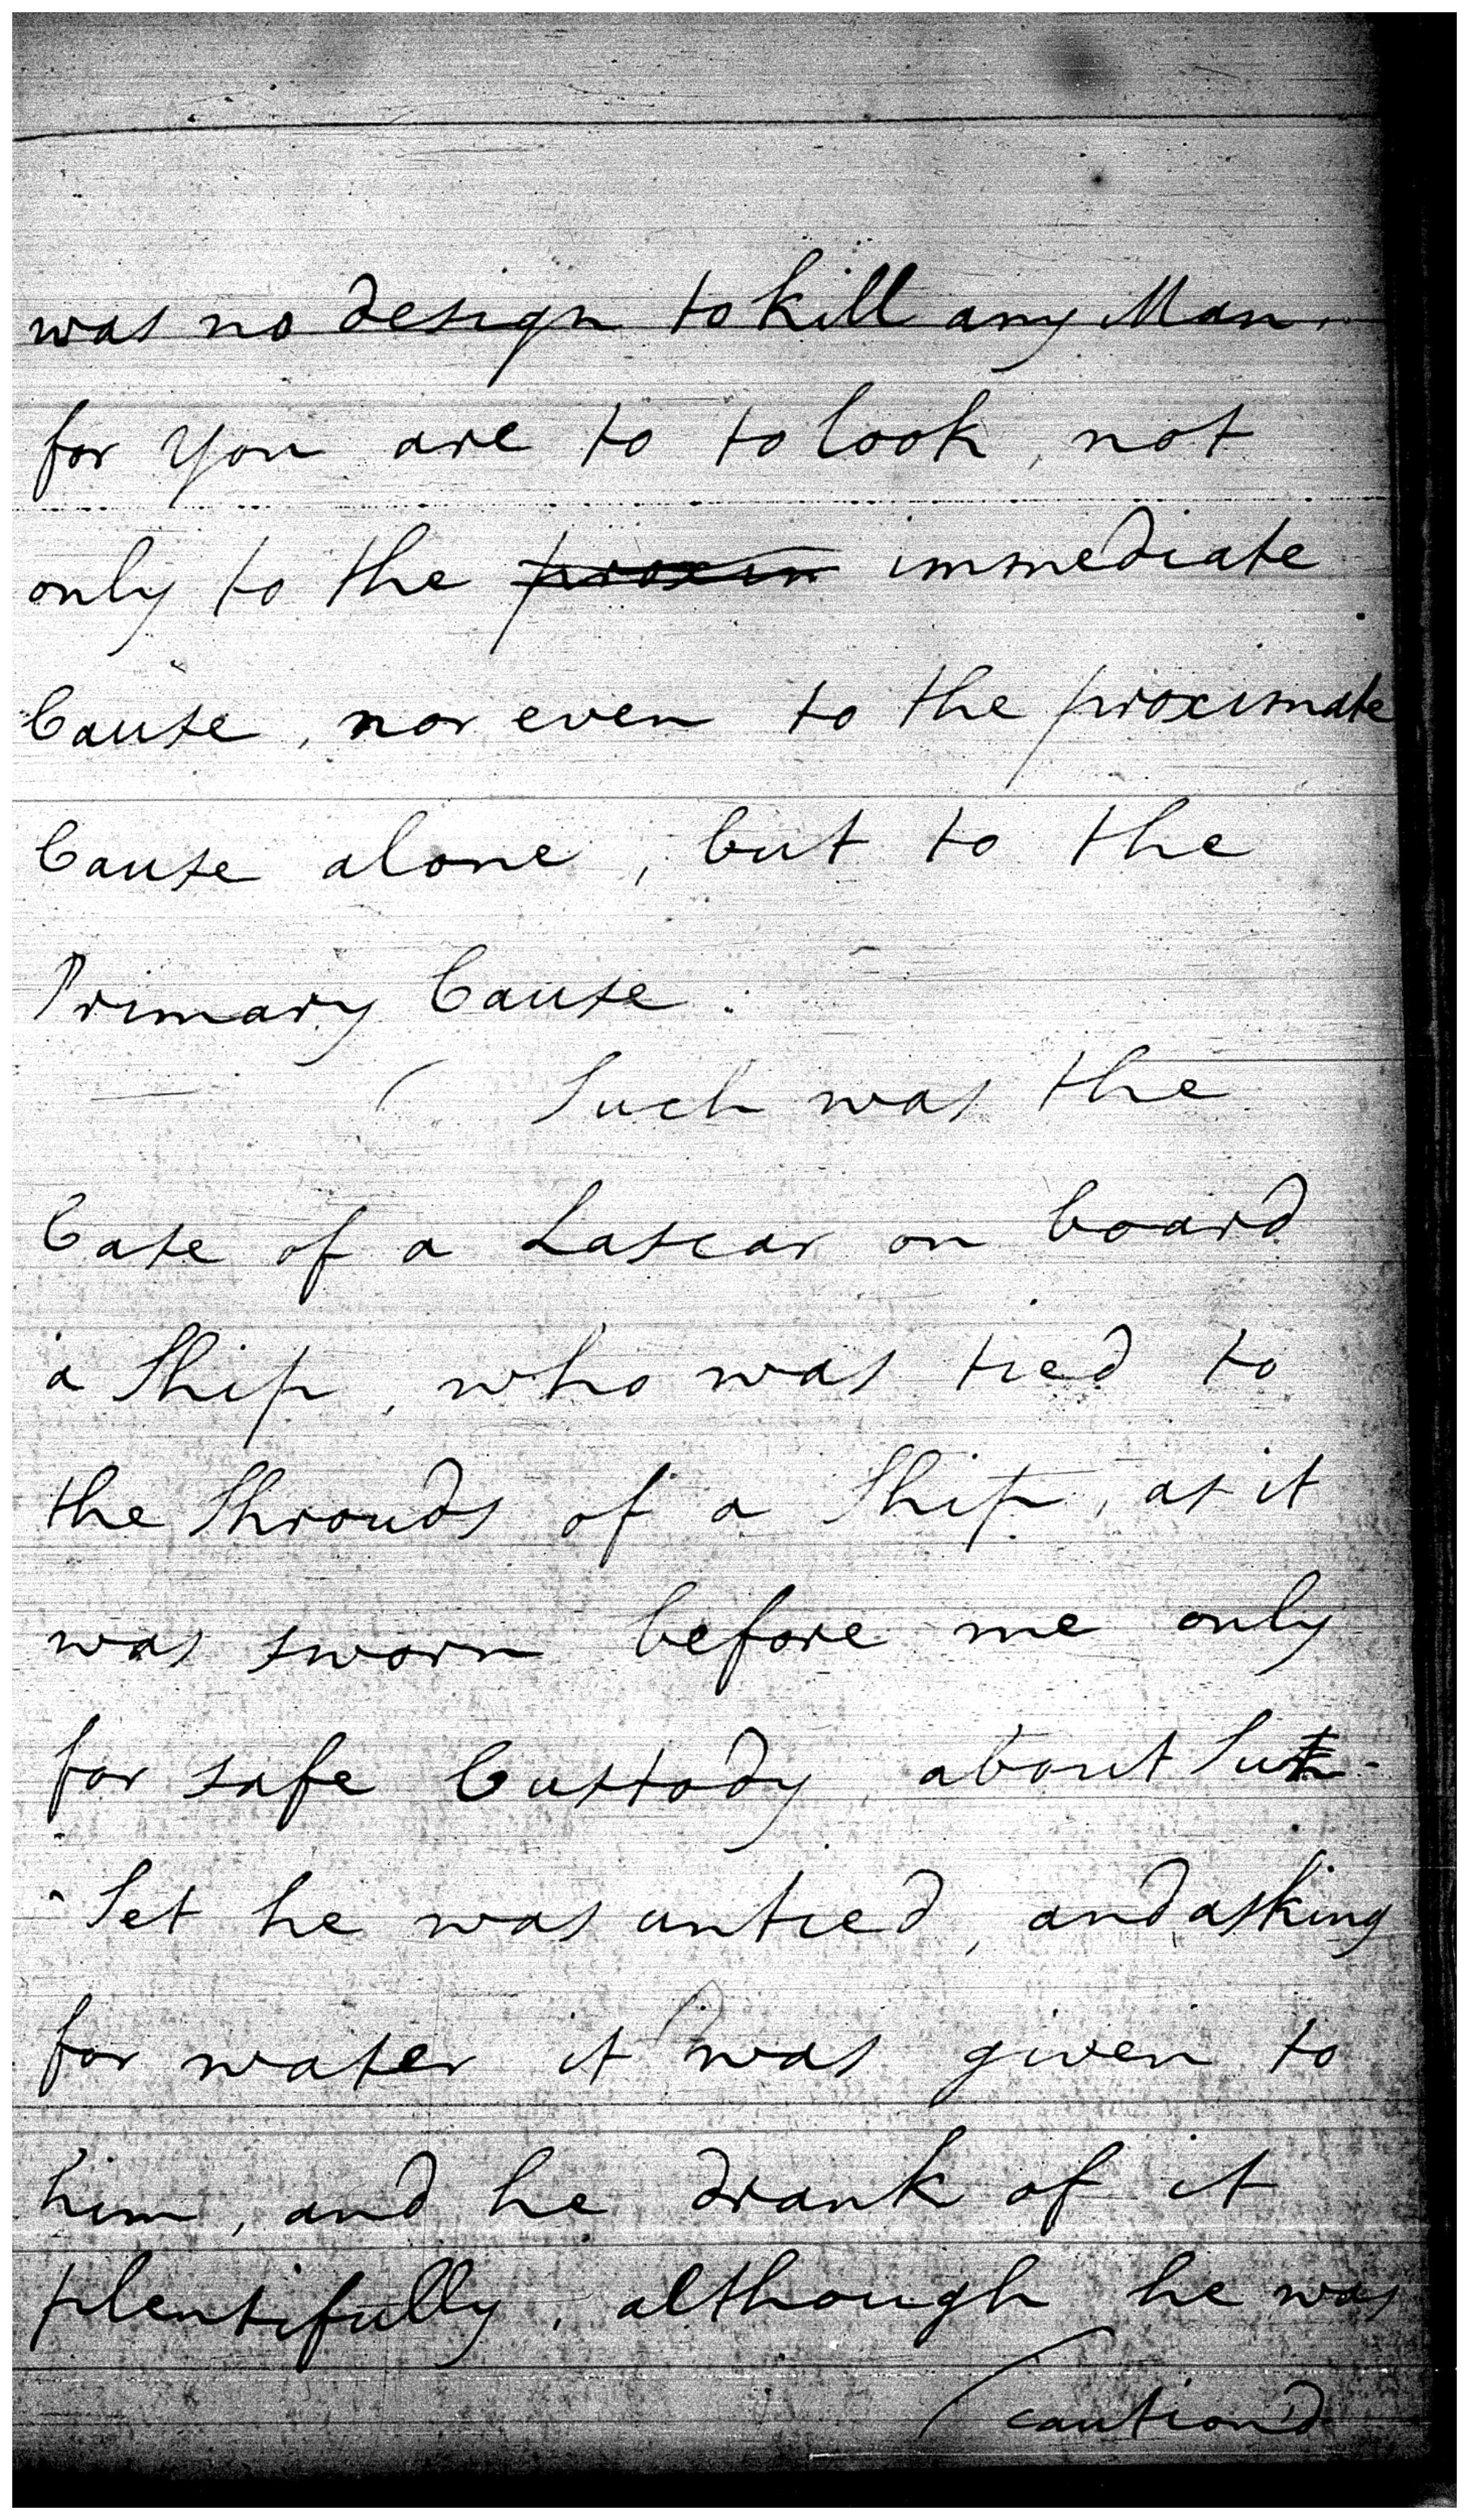 was no design to kill any Man.
for you are to to look, not
only to the ~~proxim~~ immediate
Cause, nor even to the proximate
Cause alone, but to the
Primary Cause.
( Such was the
Case of a Lascar on board
a Ship, who was tied to
the Shrouds of a Ship, as it
was sworn before me only
for safe Custody, about Sun-
-Set he was untied, and asking
for water it was given to
him, and he drank of it
plentifully, although he was
(caution'd